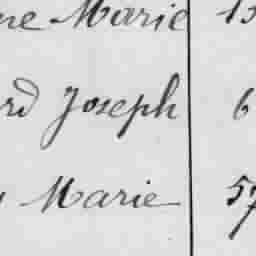 ne Marie 13
rd Joseph 6
Marie 57